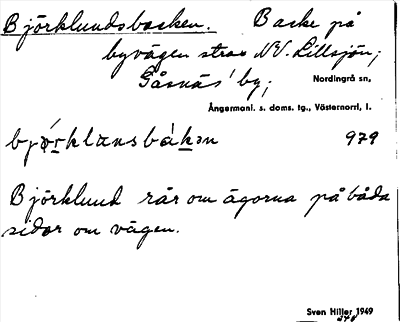 Björklundsbacken. Backe på
byvägen strax NV. Lillsjön,
Gåsnäs' by,
Nordingrå sn,
Ångermanl. s. doms. tg., Västernorrl. l.
979
Björklund rår om ägorna på båda
sidor om vägen.
Sven Hiller 1949